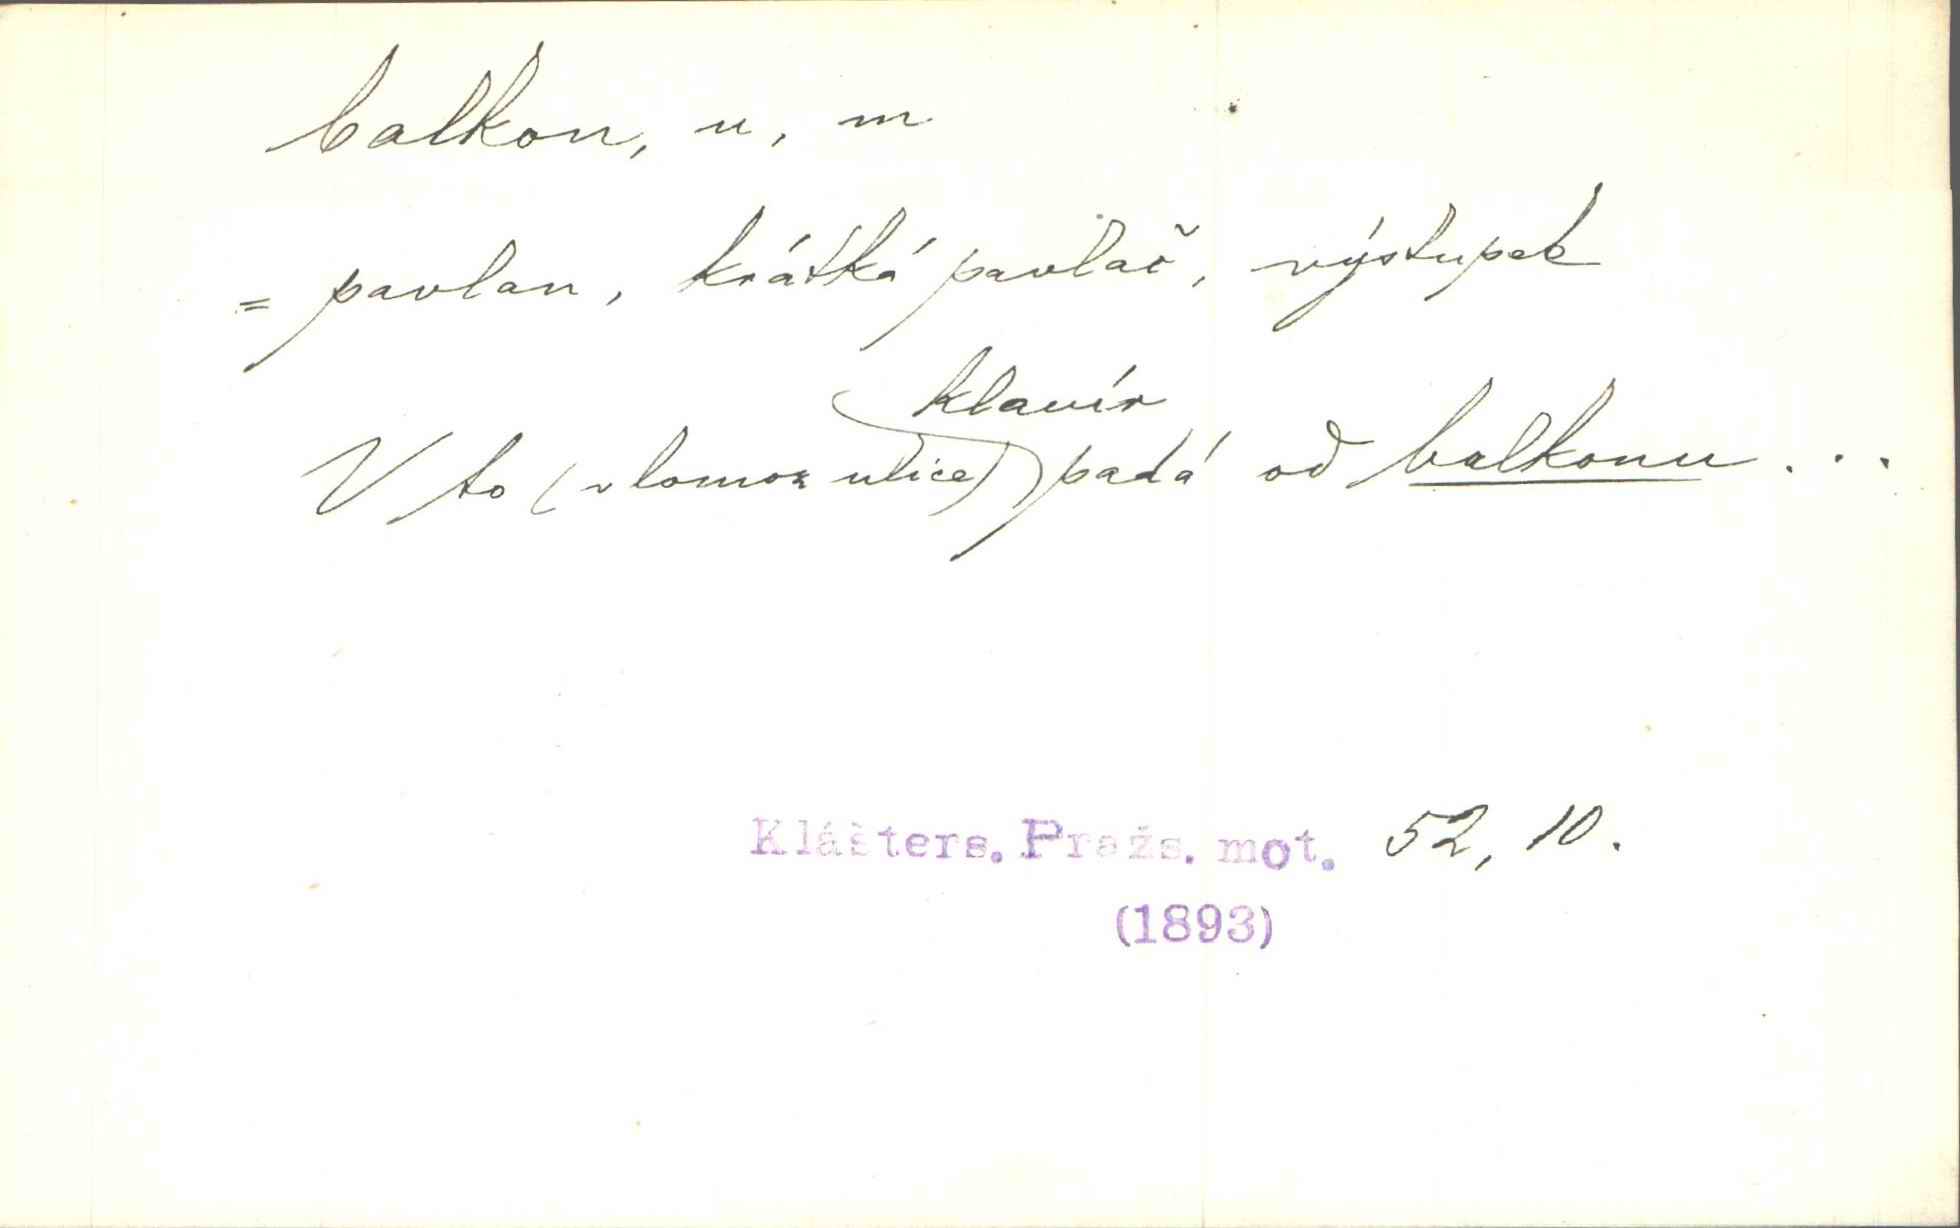 balkon, u, m
= pavlan, krátká pavlač, výstupek
klavír
V to (vlomoz ulice) padá od balkonu...
Klášters. Pražs. mot. 52, 10.
(1893)